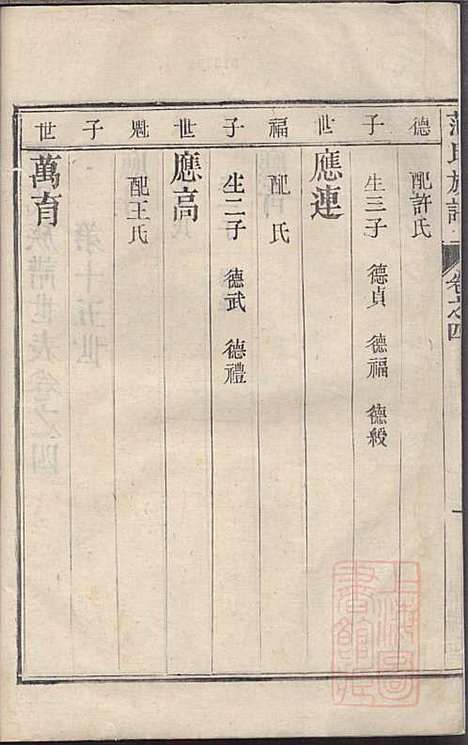 氏族譜
卷之四
一
德 配許氏
子 生三子 德貞 德福 德綬
世 應連
福 配 氏
子 生二子 德武 德禮
世 應高
配王氏
子
世 萬育
上海圖
書館藏